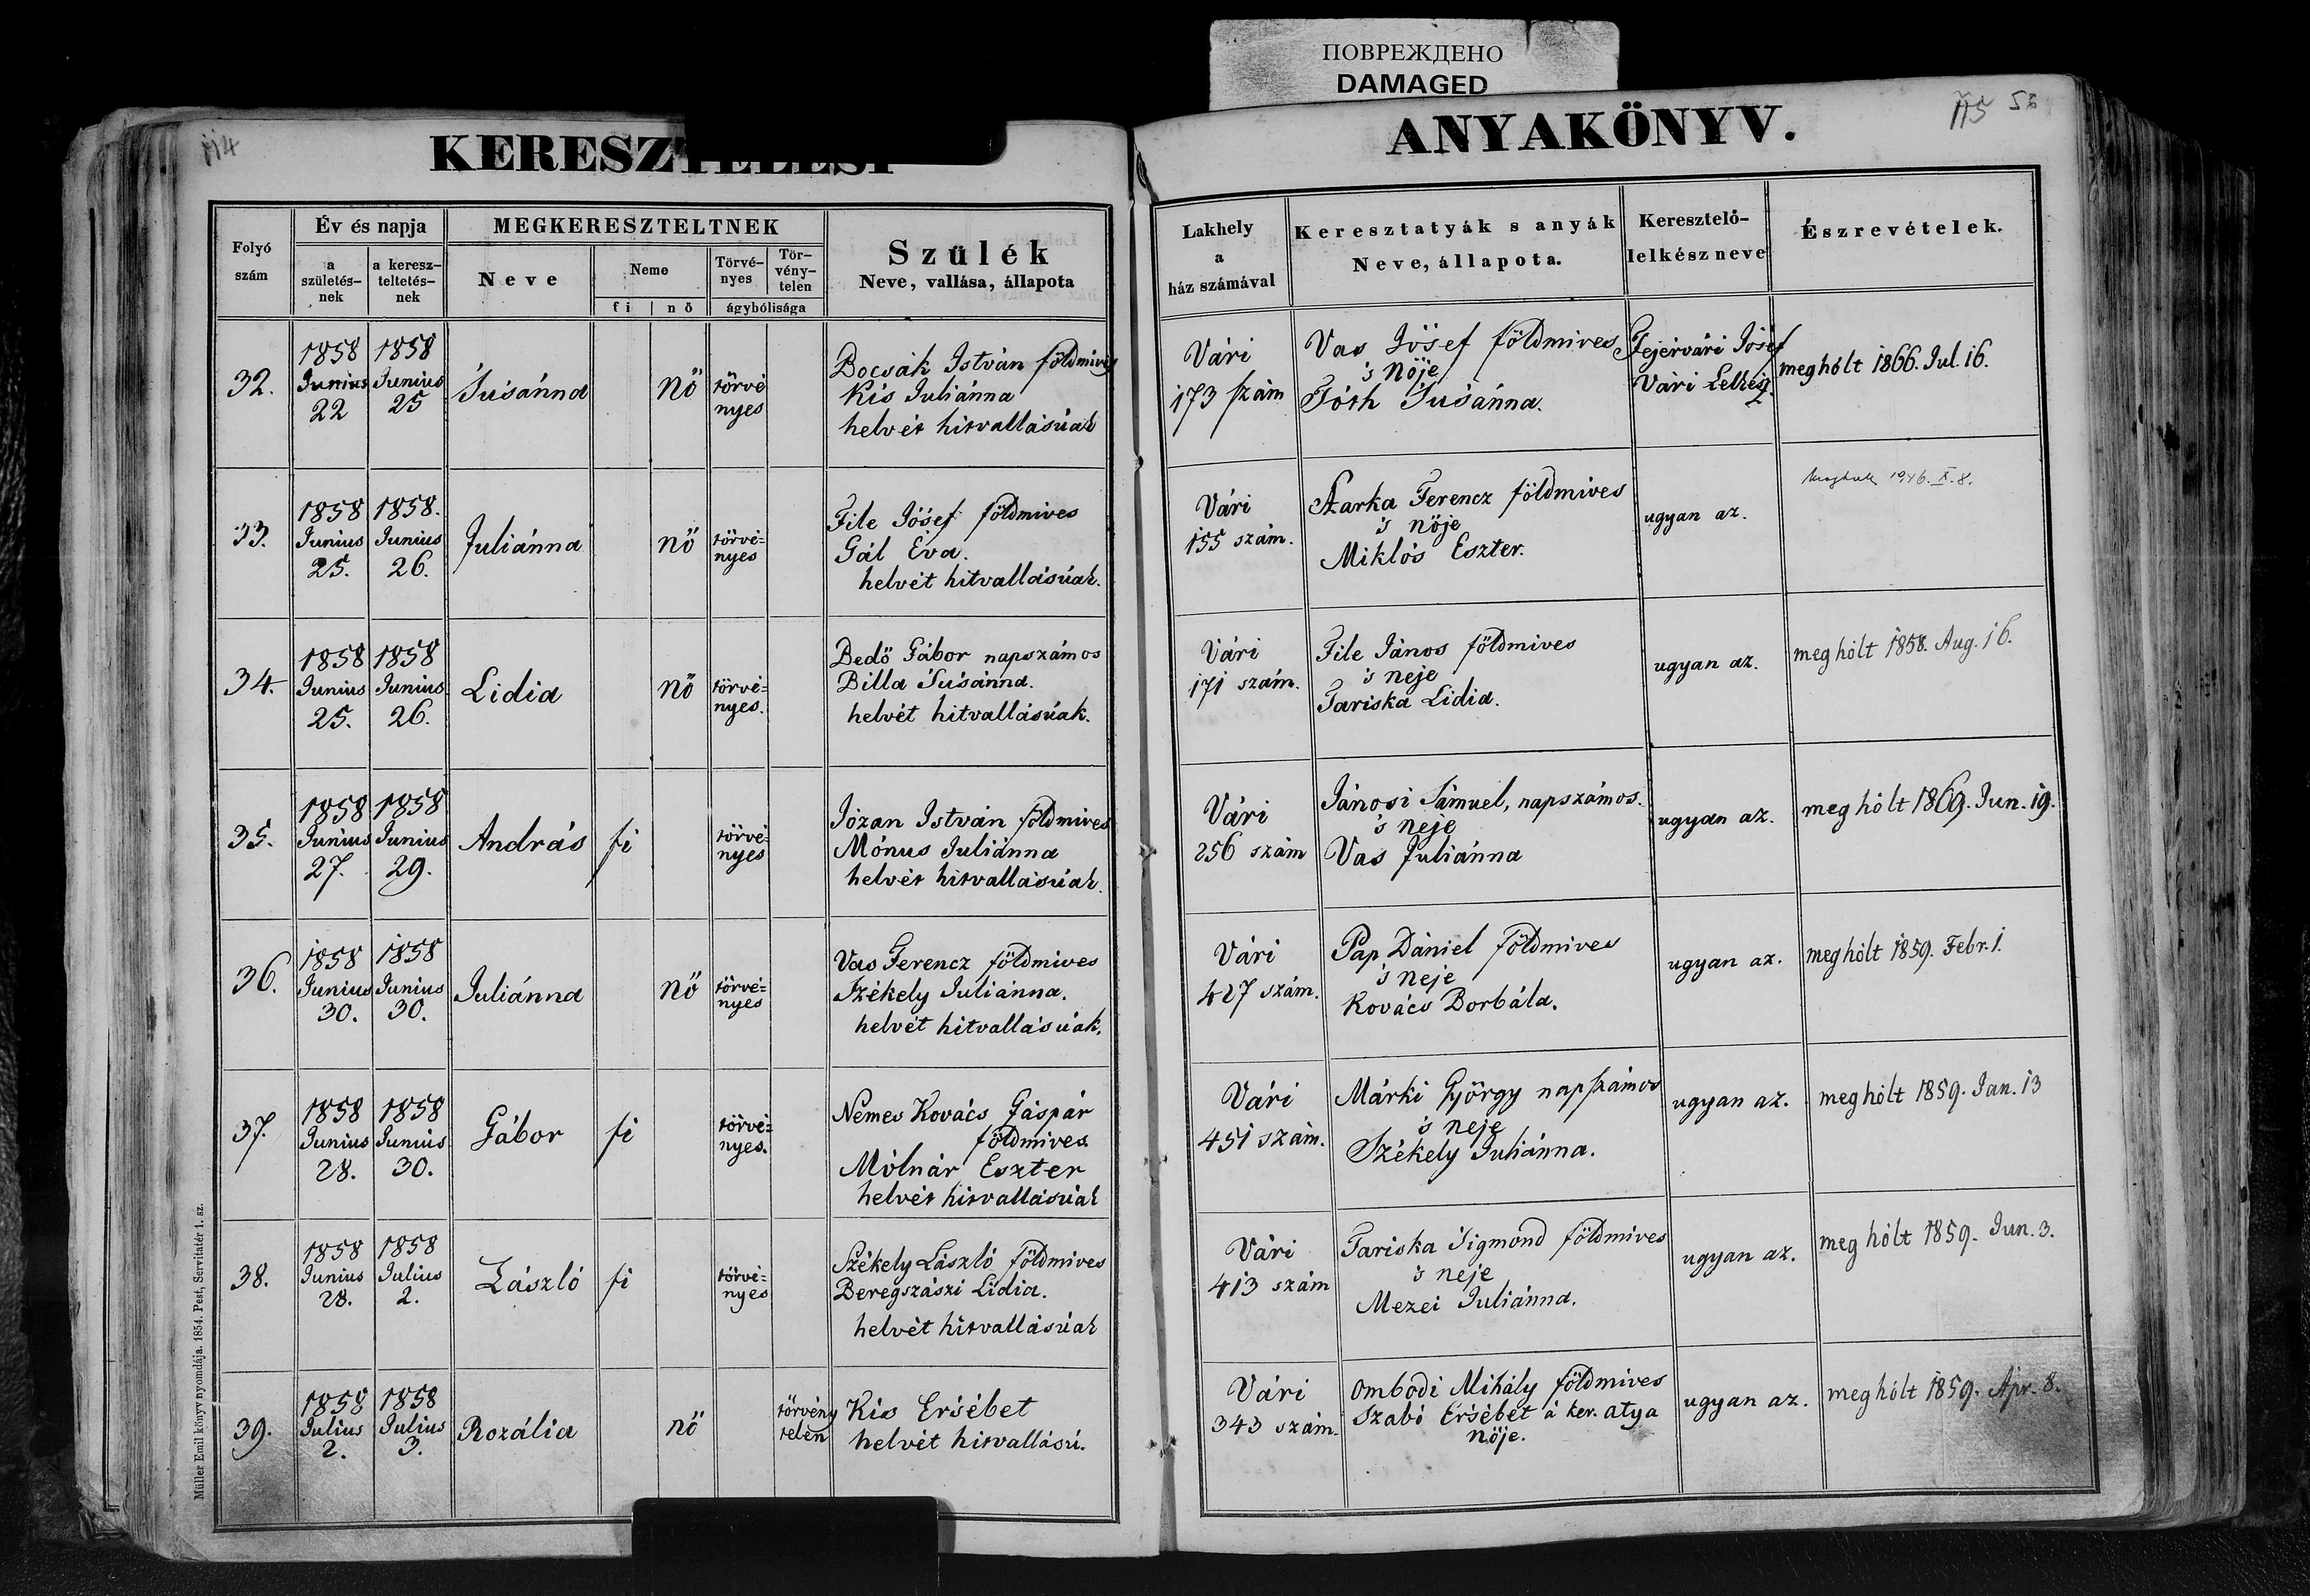 ПОВРЕЖДЕНО
DAMAGED
114
KERESZTELÉSI
Folyó szám
Év és napja
a születés-nek
a keresz-teltetés-nek
MEGKERESZTELTNEK
Neve
Neme
fi
nő
Törvé-nyes
Tör-vény-telen
ágybólisága
Szülék
Neve, vallása, állapota
32.
1858 Junius 22
1858 Junius 25
Súsánna
nő
törvé nyes
Bocsák István földmives
Kis Juliánna
helvét hitvallásúak
33.
1858 Junius 25.
1858. Junius 26.
Juliánna
nő
törvé=nyes
File Jósef földmives
Gál Éva.
helvét hitvallásúak.
34.
1858 Junius 25.
1858 Junius 26.
Lidia
nő
törvé=nyes.
Bedő Gábor napszámos
Billa Súsánna.
helvét hitvallásúak.
35.
1858 Junius 27.
1858 Junius 29.
András
fi
törvé=nyes
Józan István földmives
Mónus Juliánna
helvét hitvallásúak.
36.
1858 Junius 30.
1858 Junius 30.
Juliánna
nő
törvé=nyes
Vas Ferencz földmives
Székely Juliánna.
helvét hitvallásúak.
37.
1858 Junius 28.
1858 Junius 30.
Gábor
fi
törvé=nyes.
Nemes Kovács Gáspár
földmives
Mólnár Eszter
helvét hitvallásúak
38.
1858 Junius 28.
1858 Julius 2.
László
fi
törvé=nyes
Székely László földmives
Beregszászi Lidia.
helvét hitvallásúak
39.
1858 Julius 2.
1858 Julius 3.
Rozália
nő
törvény telen
Kis Ersébet
helvét hitvallású.
Müller Emil könyvnyomdája. 1854. Pest, Servitatér 1. sz.
115
ANYAKÖNYV.
Lakhely
a
ház számával
Keresztatyák s anyák
Neve, állapota.
Keresztelő-
lelkész neve
Észrevételek.
Vári
173 szám
Vas Jósef földmives
's nője
Tóth Súsánna.
Fejérvári Jósef
Vári Lelkész.
meghólt 1866. Jul. 16.
Vári
155 szám.
Szarka Ferencz földmives
's nője
Miklós Eszter.
ugyan az.
1946. X. 8.
Vári
171 szám.
File János földmives
's neje
Tariska Lidia.
ugyan az.
meghólt 1858. Aug. 16.
Vári
256 szám
Jánosi Sámuel, napszámos.
's neje
Vas Juliánna
ugyan az.
meg hólt 1869. Jun. 19.
Vári
427 szám.
Pap Dániel földmives
's neje
Kovács Borbála.
ugyan az.
meghólt 1859. Febr. 1.
Vári
451 szám.
Márki György napszámos
's neje
Székely Juliánna.
ugyan az.
meghólt 1859. Jan. 13
Vári
413 szám
Tariska Sigmond földmives
's neje
Mezei Juliánna.
ugyan az.
meg hólt 1859. Jun. 3.
Vári
343 szám.
Ombódi Mihály földmives
Szabó Ersébet á ker. atya
nője.
ugyan az.
meghólt 1859. Apr. 8.